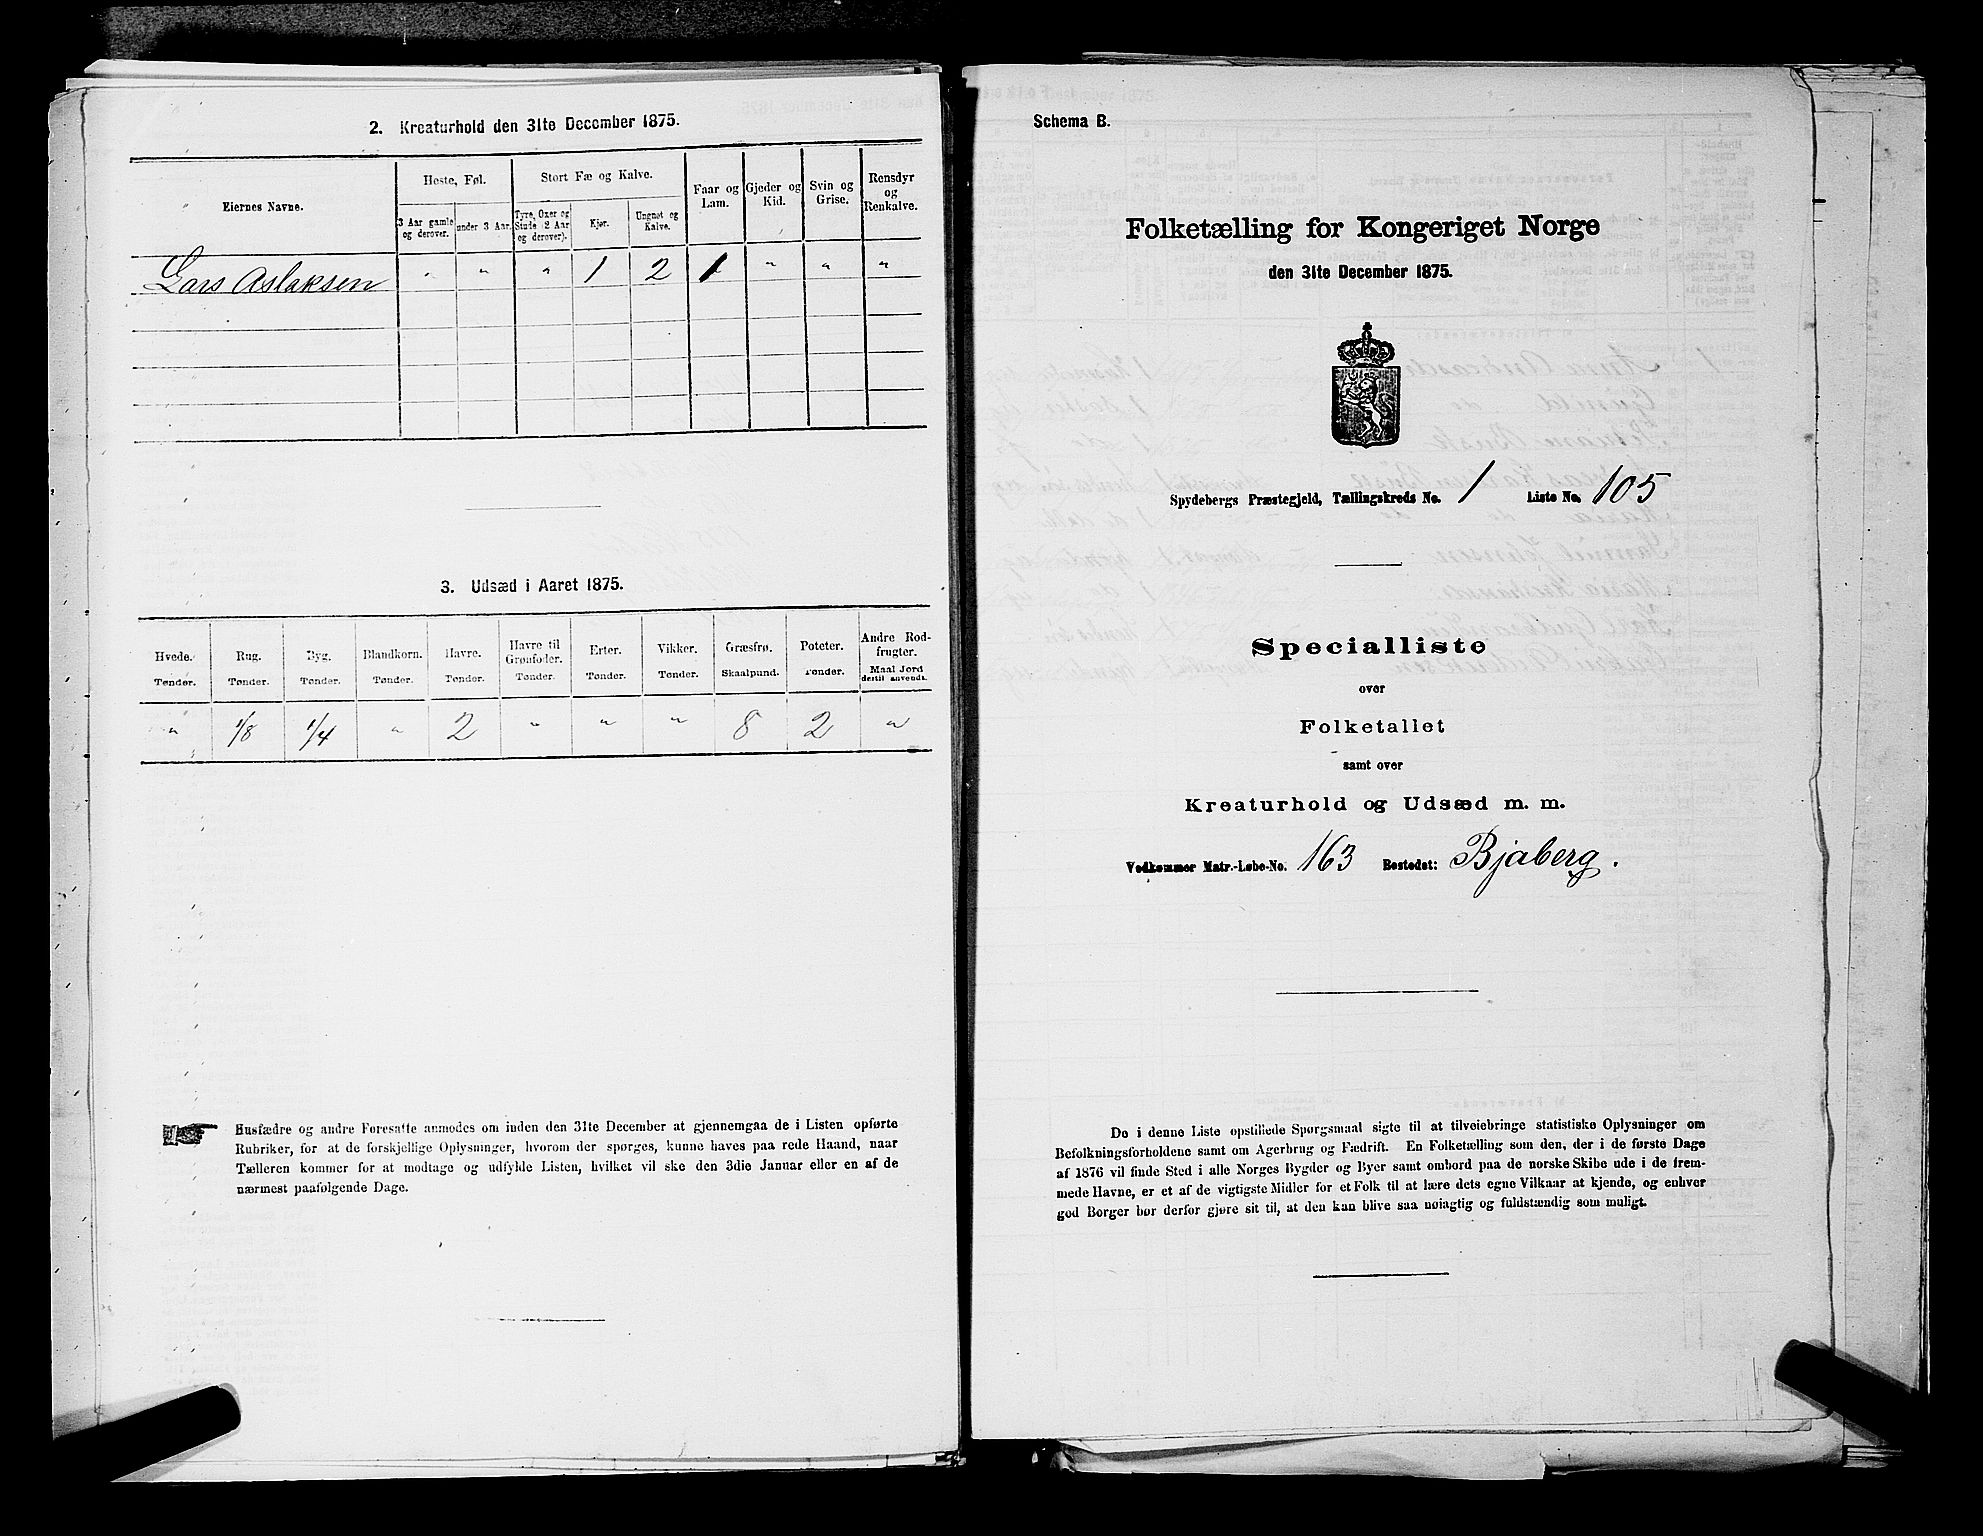 2. Kreaturhold den 31te December 1875.
Eiernes Navne.
Heste, Føl.
Stort Fæ og Kalve.
Faar og Lam.
Gjeder og Kid.
Svin og Grise.
Rensdyr og Renkalve.
3 Aar gamle og derover.
under 3 Aar.
Tyre, Oxer og Stude (2 Aar og derover).
Kjør.
Ungnøt og Kalve.
Lars Aslaksen " " " 1 2 1 " " "
3. Udsæd i Aaret 1875.
Hvede. Rug. Byg. Blandkorn. Havre. Havre til Grønfoder. Erter. Vikker. Græsfrø. Poteter. Andre Rodfrugter.
Tønder. Tønder. Tønder. Tønder. Tønder. Tønder. Tønder. Tønder. Skaalpund. Tønder. Maal Jord dertil anvendt.
" 1/8 1/4 " 2 " " " 8 2 "
Husfædre og andre Foresatte anmodes om inden den 31te December at gjennemgaa de i Listen opførte
Rubriker, for at de forskjellige Oplysninger, hvorom der spørges, kunne haves paa rede Haand, naar
Tælleren kommer for at modtage og udfylde Listen, hvilket vil ske den 3die Januar eller en af de
nærmest paafølgende Dage.
Schema B.
Folketælling for Kongeriget Norge
den 31te December 1875.
Spydebergs Præstegjeld, Tællingskreds No. 1 Liste No. 105
Specialliste
over
Folketallet
samt over
Kreaturhold og Udsæd m. m.
Vedkommer Matr.-Løbe-No. 163 Bostedet: Bjaberg.
De i denne Liste opstillede Spørgsmaal sigte til at tilveiebringe statistiske Oplysninger om
Befolkningsforholdene samt om Agerbrug og Fædrift. En Folketælling som den, der i de første Dage
af 1876 vil finde Sted i alle Norges Bygder og Byer samt ombord paa de norske Skibe ude i de frem-
mede Havne, er et af de vigtigste Midler for et Folk til at lære dets egne Vilkaar at kjende, og enhver
god Borger bør derfor gjøre sit til, at den kan blive saa nøiagtig og fuldstændig som muligt.